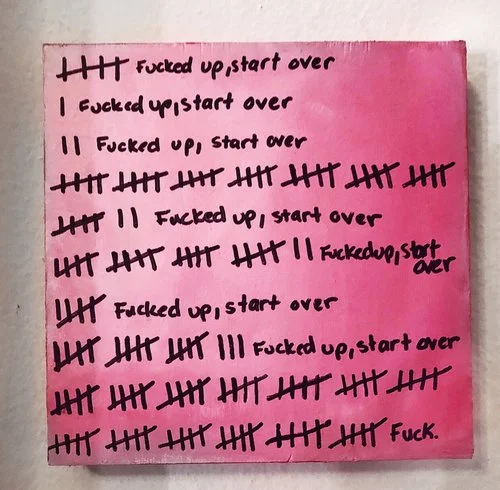 卌 Fucked up, start over
| Fucked up, start over
|| Fucked up, start over
卌 卌 卌 卌 卌 卌 卌
卌 || Fucked up, start over
卌 卌 卌 卌 || Fucked up, start
over
卌 Fucked up, start over
卌 卌 卌 ||| Fucked up, start over
卌 卌 卌 卌 卌 卌 卌
卌 卌 卌 卌 卌 卌 Fuck.